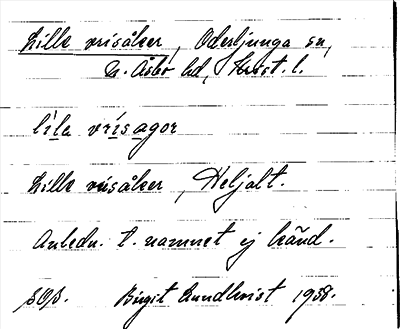 Lille vrisåker, Oderljunga sn,
N. Åsbo hd, Krist. l.
lila vrisagor
Lille vrisåker, Heljalt.
Anledn. t. namnet ej känd.
Birgit Lundkvist 1958.